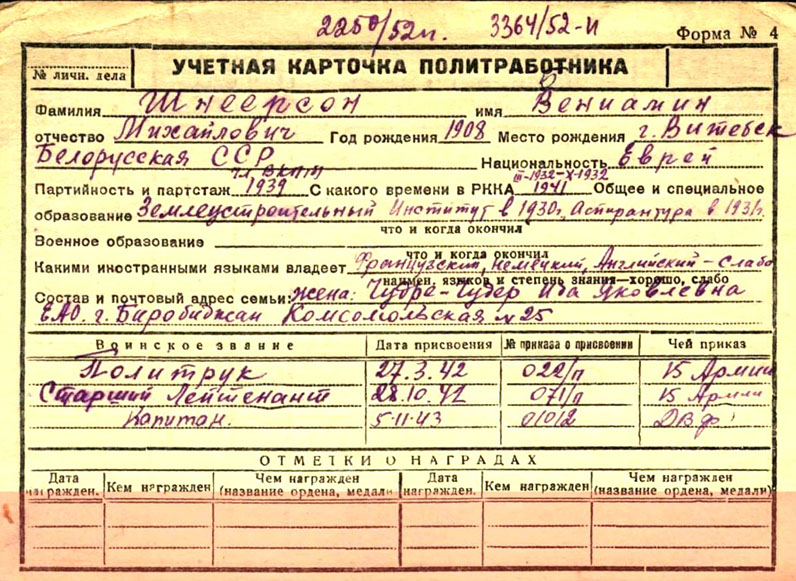 2250/52п. 3364/52-И
Форма № 4
№ личн. дела
УЧЕТНАЯ КАРТОЧКА ПОЛИТРАБОТНИКА
Фамилия Шнеерсон имя Вениамин
отчество Михайлович Год рождения 1908 Место рождения г. Витебск
Белорусская ССР Национальность Еврей
чл. ВКП(б) III-1932-X-1932
Партийность и партстаж 1939 С какого времени в РККА 1941 Общее и специальное
образование Землеустроительный Институт в 1930г, Аспирантура в 193
что и когда окончил
Военное образование
что и когда окончил
Какими иностранными языками владеет Французский, Немецкий, Английский - Слабо
наимен. языков и степень знания—хорошо, слабо
Состав и почтовый адрес семьи: жена: Ида Яковлевна
ЕАО. г. Биробиджан Комсомольская №25
Воинское звание Дата присвоения № приказа о присвоении Чей приказ
Политрук 27.3.42 022/п 15 Армии
Старший Лейтенант 28.10.42 071/п 15 Армии
Капитан. 5-11-43 0102 ДВФ
ОТМЕТКИ О НАГРАДАХ
Дата награжден. Кем награжден Чем награжден (название ордена, медали) Дата награжден. Кем награжден Чем награжден (название ордена, медали)